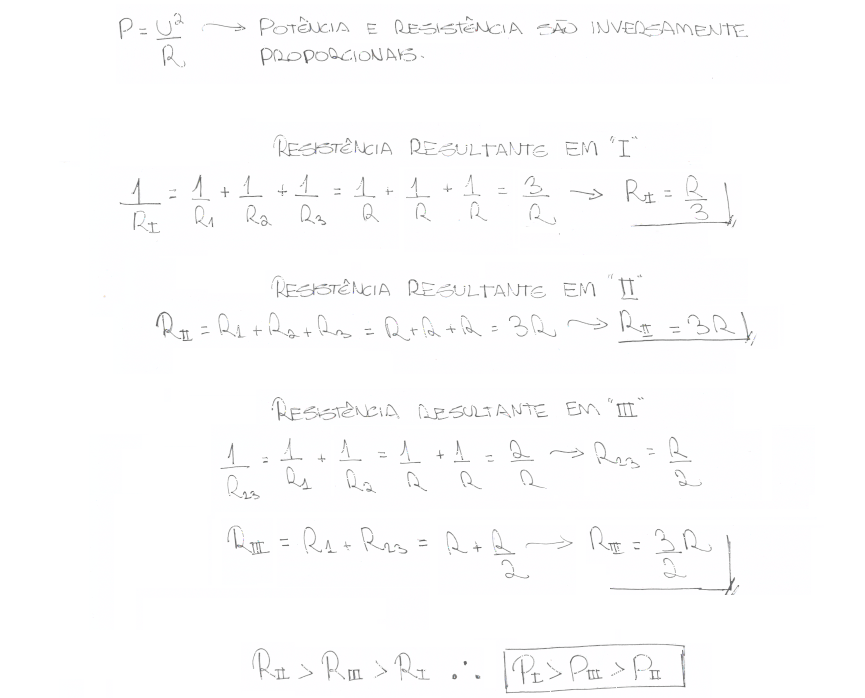 P = U²/R → POTÊNCIA E RESISTÊNCIA SÃO INVERSAMENTE
PROPORCIONAIS.
RESISTÊNCIA RESULTANTE EM "I"
1/R_I = 1/R₁ + 1/R₂ + 1/R₃ = 1/R + 1/R + 1/R = 3/R → R_I = R/3
RESISTÊNCIA RESULTANTE EM "II"
R_II = R₁ + R₂ + R₃ = R + R + R = 3R → R_II = 3R
RESISTÊNCIA RESULTANTE EM "III"
1/R₂₃ = 1/R₁ + 1/R₂ = 1/R + 1/R = 2/R → R₂₃ = R/2
R_III = R₁ + R₂₃ = R + R/2 → R_III = 3R/2
R_II > R_III > R_I ∴ P_I > P_III > P_II